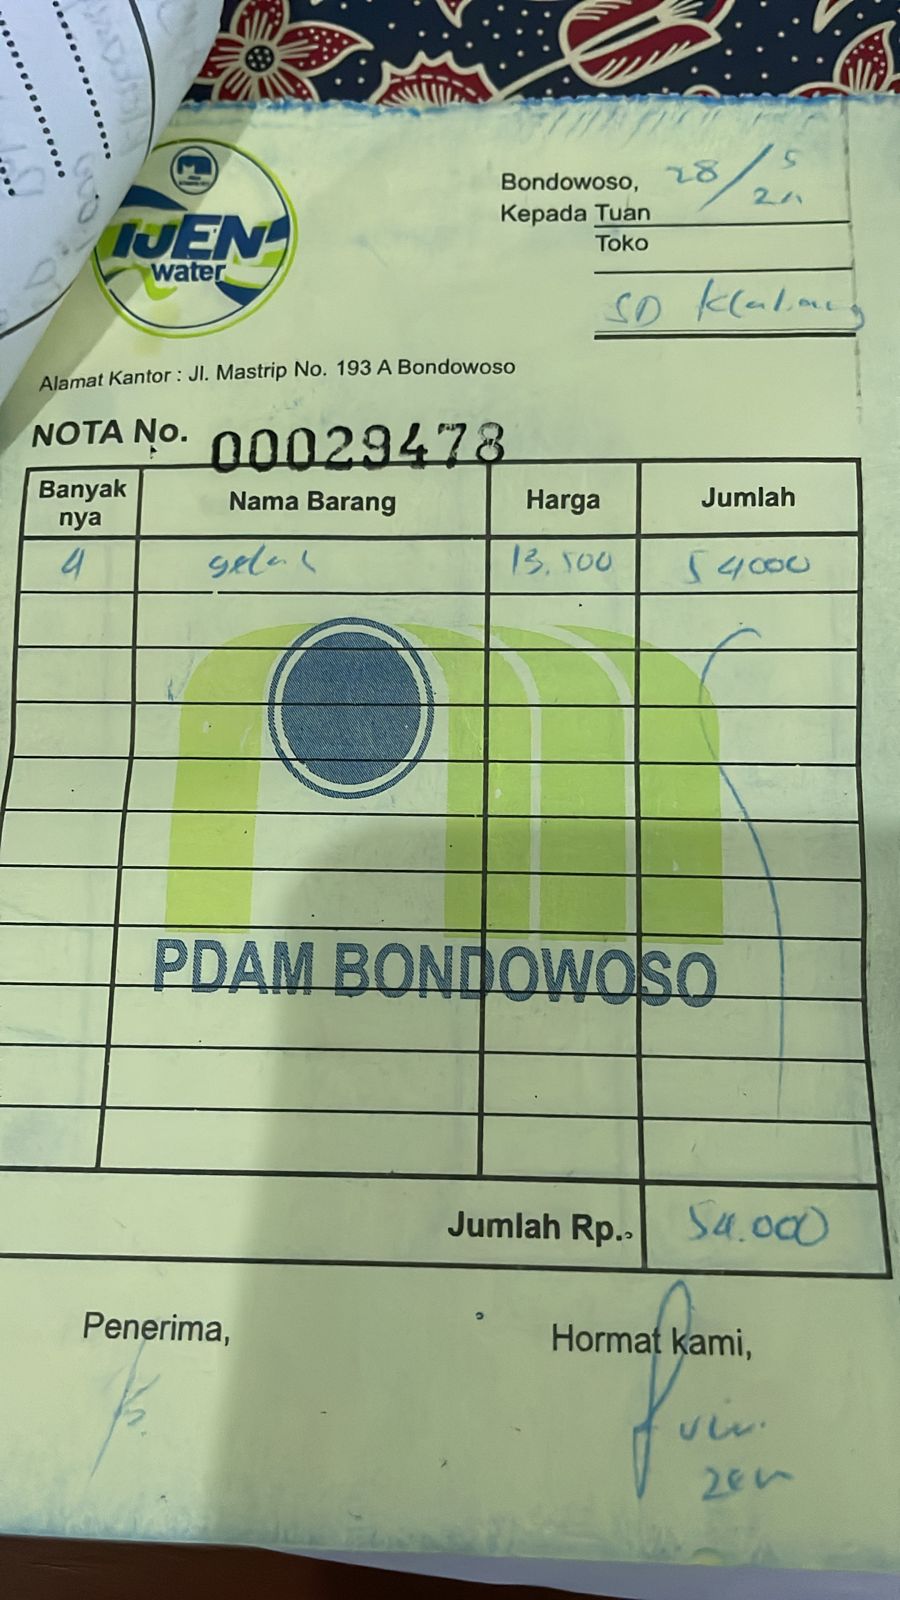 IJEN
water
Bondowoso, 28/5
Kepada Tuan
Toko
SD Klabang
Alamat Kantor : Jl. Mastrip No. 193 A Bondowoso
NOTA No. 00029478
Banyak nya Nama Barang Harga Jumlah
4 gelas 13.500 54000
PDAM BONDOWOSO
Jumlah Rp. 54.000
Penerima, Hormat kami,